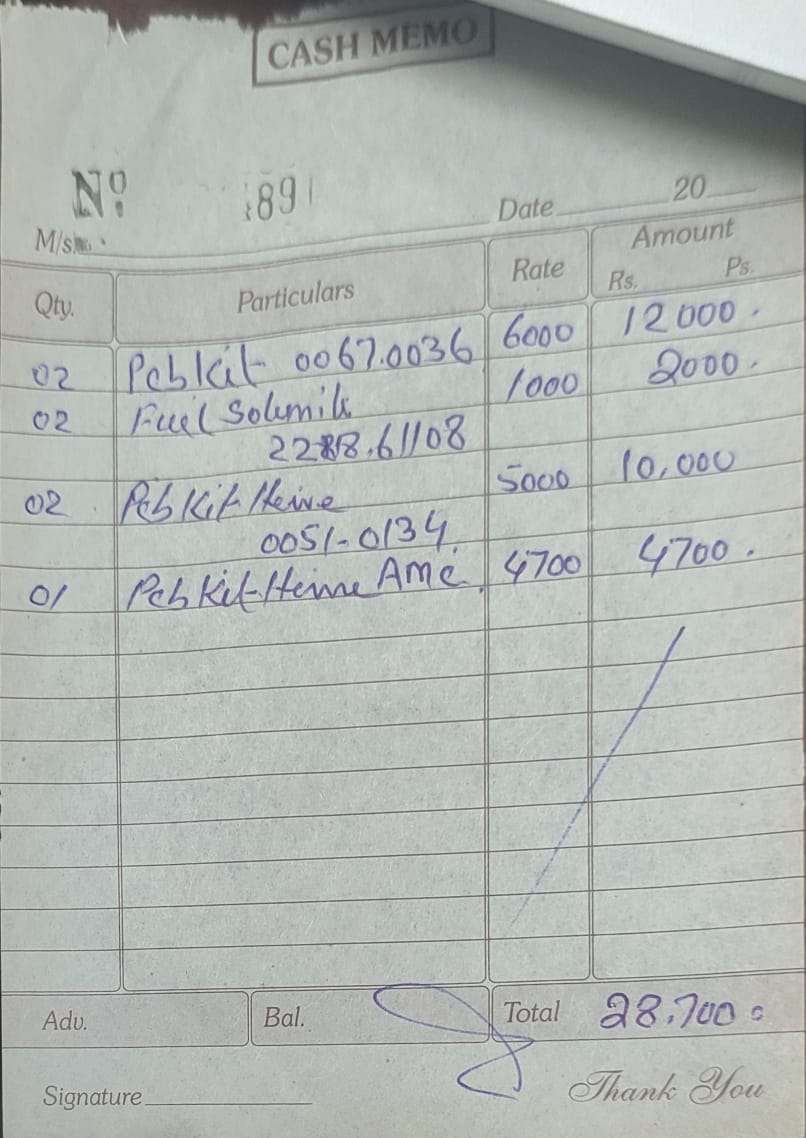 CASH MEMO
Nº 891
Date 20
M/s.
Qty. Particulars Rate Amount
Rs. Ps.
02 Pcb Kit 0067.0036 6000 12000.
02 Fuel 1000 2000.
02 Pcb Kit Heine 5000 10,000
0051-0134
01 Pcb Kit-Heine AMC. 4700 4700.
Adv. Bal. Total 28,700
Signature
Thank You